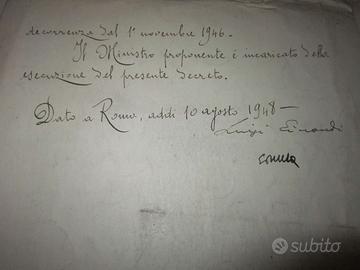 decorrenza dal 1° novembre 1946.
Il Ministro proponente è incaricato della
esecuzione del presente decreto.
Dato a Roma, addì 10 agosto 1948 —
Luigi Einaudi
subito